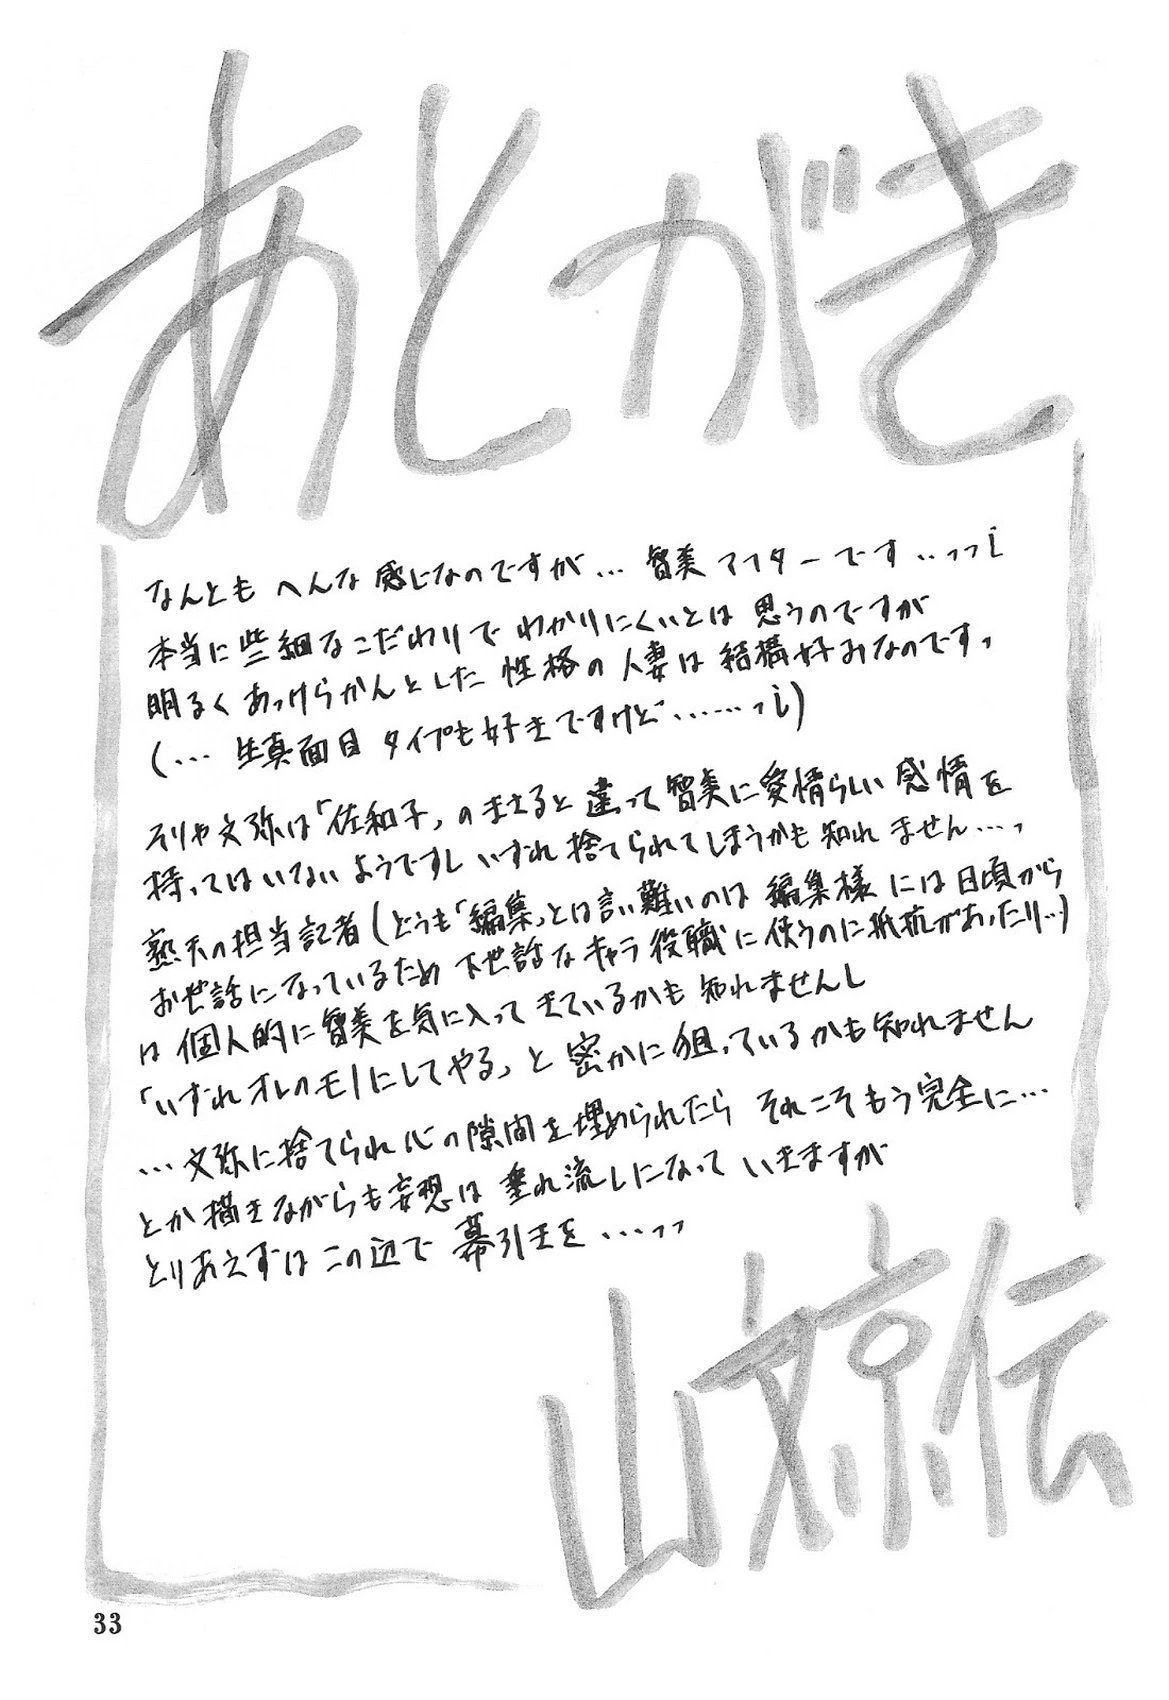 あとがき
なんとも へんな 感じなのですが… 智美 アフター です‥‥ッッ⸘
本当に 些細な こだわりで わかりにくいとは 思うのですが
明るく あっけらかんとした 性格の 人妻は 結構好みなのですッ
(… 生真面目 タイプも好きですけど……ッ⸘)
そりゃ文弥は「佐和子」のまさると 違って 智美に愛情らしい 感情を
持ってはいないようですし いずれ 捨てられてしまうかも 知れ ません…ッ
熟天の担当記者(どうも「編集」とは言い難いのは 編集様 には 日頃から
お世話になっているため 下世話な キャラ 役職 に 使うのに抵抗があったり…)
は 個人的に 智美 を気に入って きているかも 知れませんし
「いずれ オレのモノにしてやる」と 密かに 狙っているかも知れません
… 文弥に捨てられ 心の隙間を 埋められたら それこそもう 完全に…
とか 描きながらも妄想は 垂れ流しになって いきますが
とりあえずは この辺で 幕引きを …ッッ
山文京伝
33